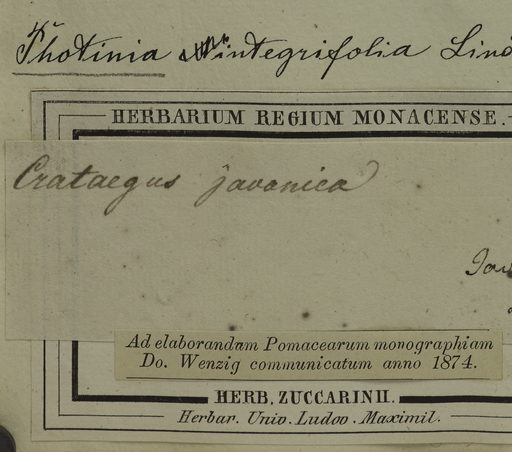 Photinia integrifolia Lind
HERBARIUM REGIUM MONACENSE.
Crataegus javanica
Ad elaborandam Pomacearum monographiam
Do. Wenzig communicatum anno 1874.
HERB. ZUCCARINII.
Herbar. Univ. Ludov. Maximil.